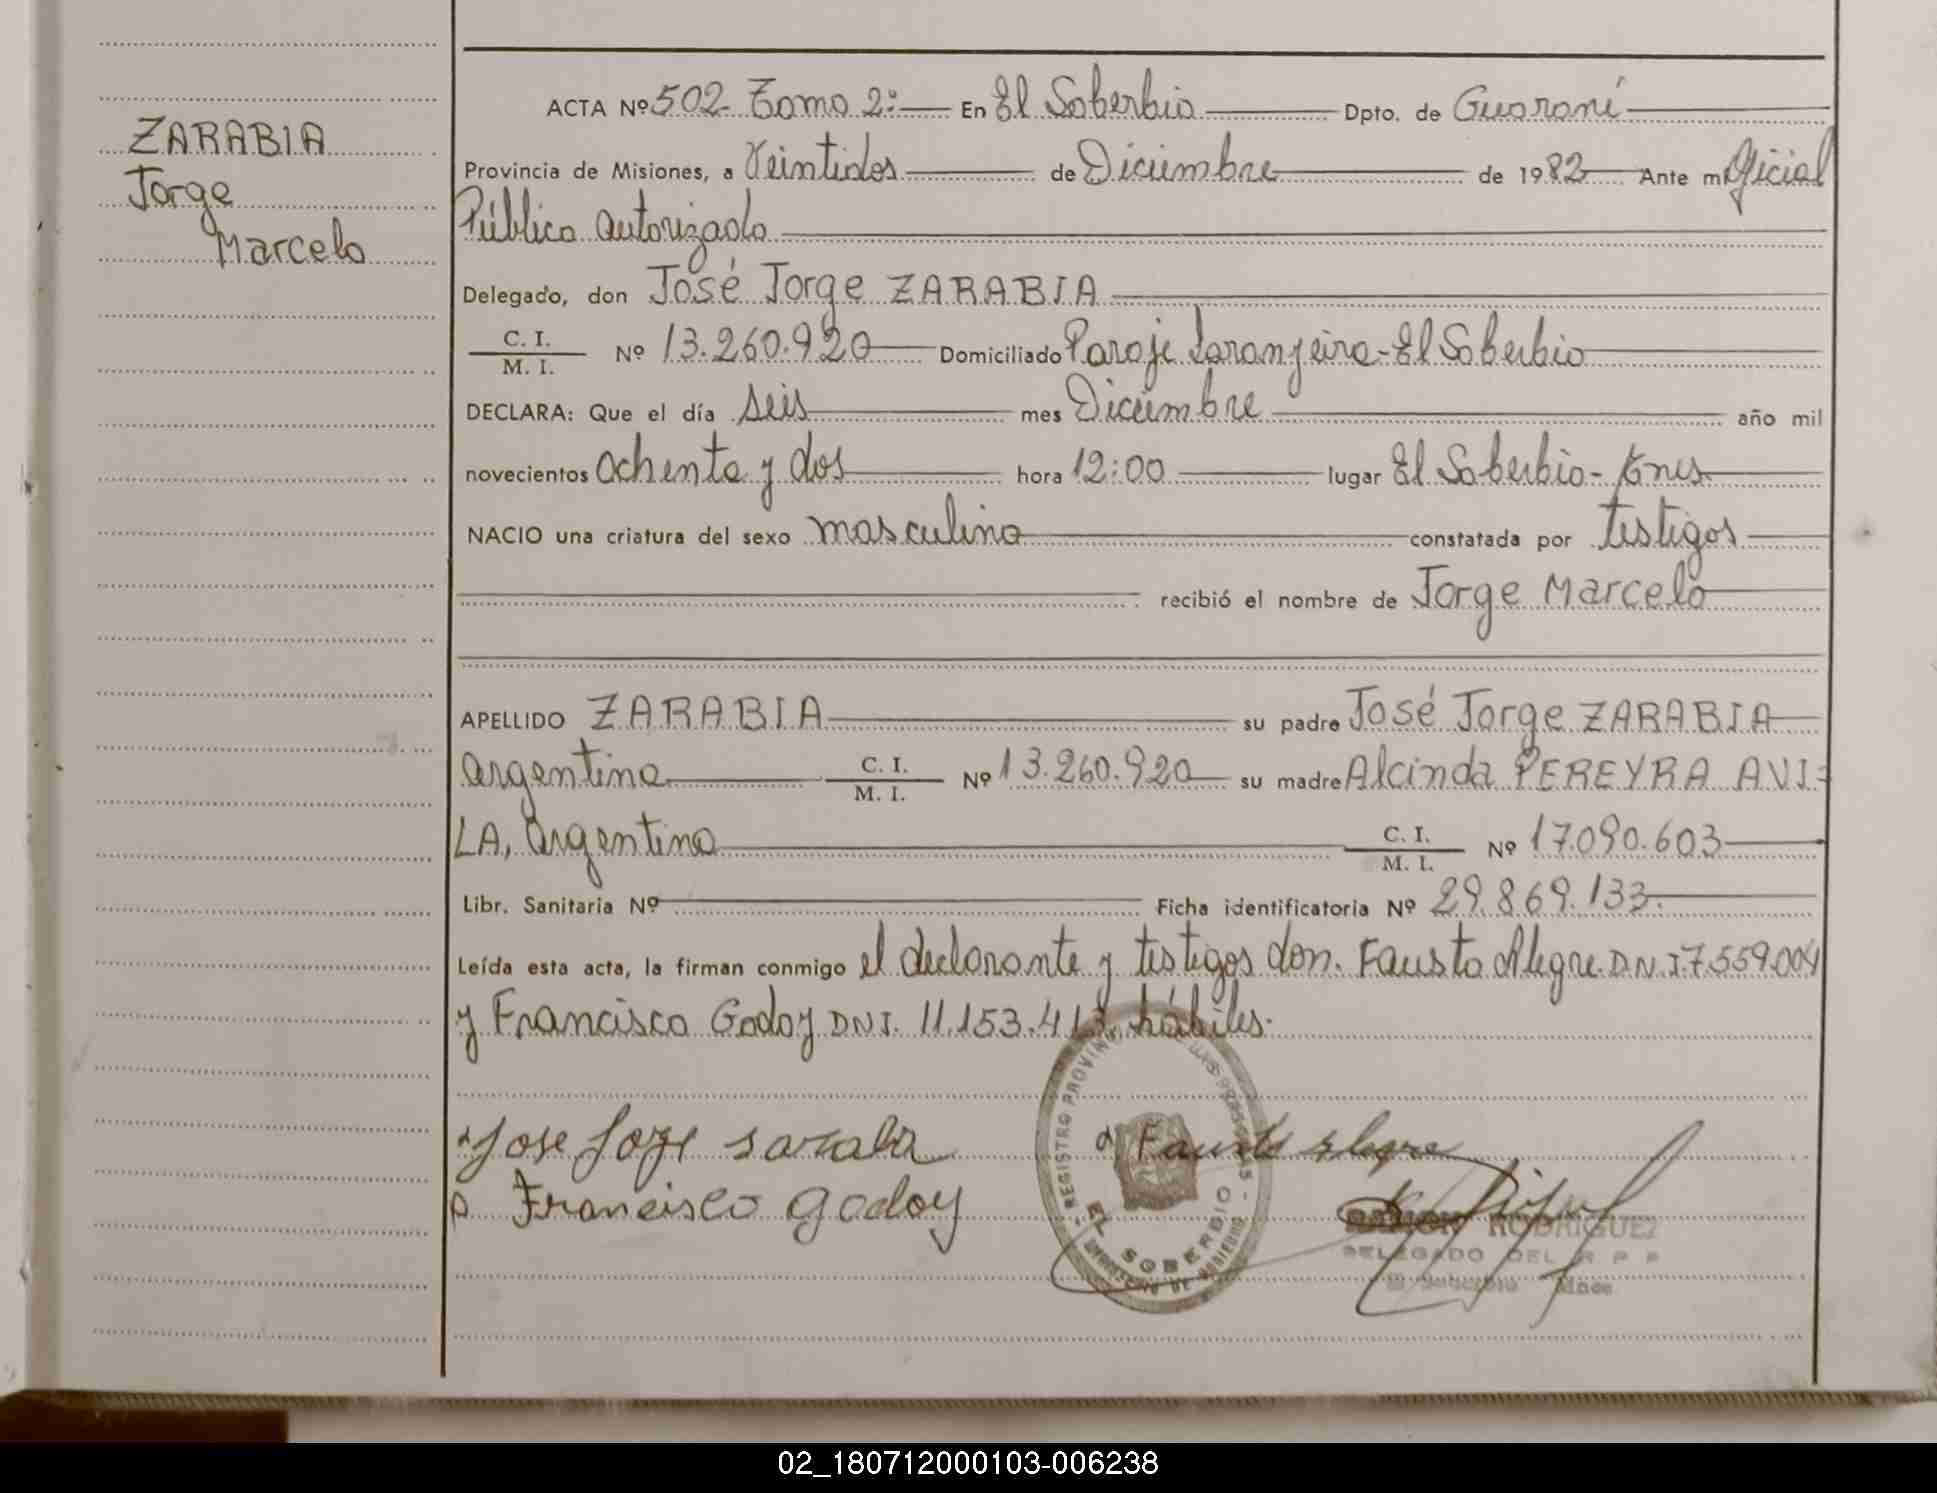 ZARABIA
Jorge
Marcelo
ACTA Nº 502 Tomo 2º En El Soberbio Dpto. de Guaraní
Provincia de Misiones, a Veintidos de Diciembre de 1982 Ante mi Oficial
Público autorizado
Delegado, don José Jorge ZARABIA
C. I.
M. I. Nº 13.260.920 Domiciliado Paraje Laranjeira-El Soberbio
DECLARA: Que el día seis mes Diciembre año mil
novecientos ochenta y dos hora 12:00 lugar El Soberbio-Mnes
NACIO una criatura del sexo masculino constatada por testigos
recibió el nombre de Jorge Marcelo
APELLIDO ZARABIA su padre José Jorge ZARABIA
argentino C. I. M. I. Nº 13.260.920 su madre Alcinda PEREYRA AVI-
LA, argentina C. I. M. I. Nº 17.090.603
Libr. Sanitaria Nº Ficha identificatoria Nº 29.869.133.
Leída esta acta, la firman conmigo el declarante y testigos don. Fausto Alegre D.N.I. 7.559.004
y Francisco Godoy DNI. 11.153.413, hábiles.
Jose Jorge sarabia
Fausto Alegre
Francisco Godoy
REGISTRO
EL SOBERBIO
RODRIGUEZ
DELEGADO DEL R P P
El Soberbio Mnes
02_180712000103-006238